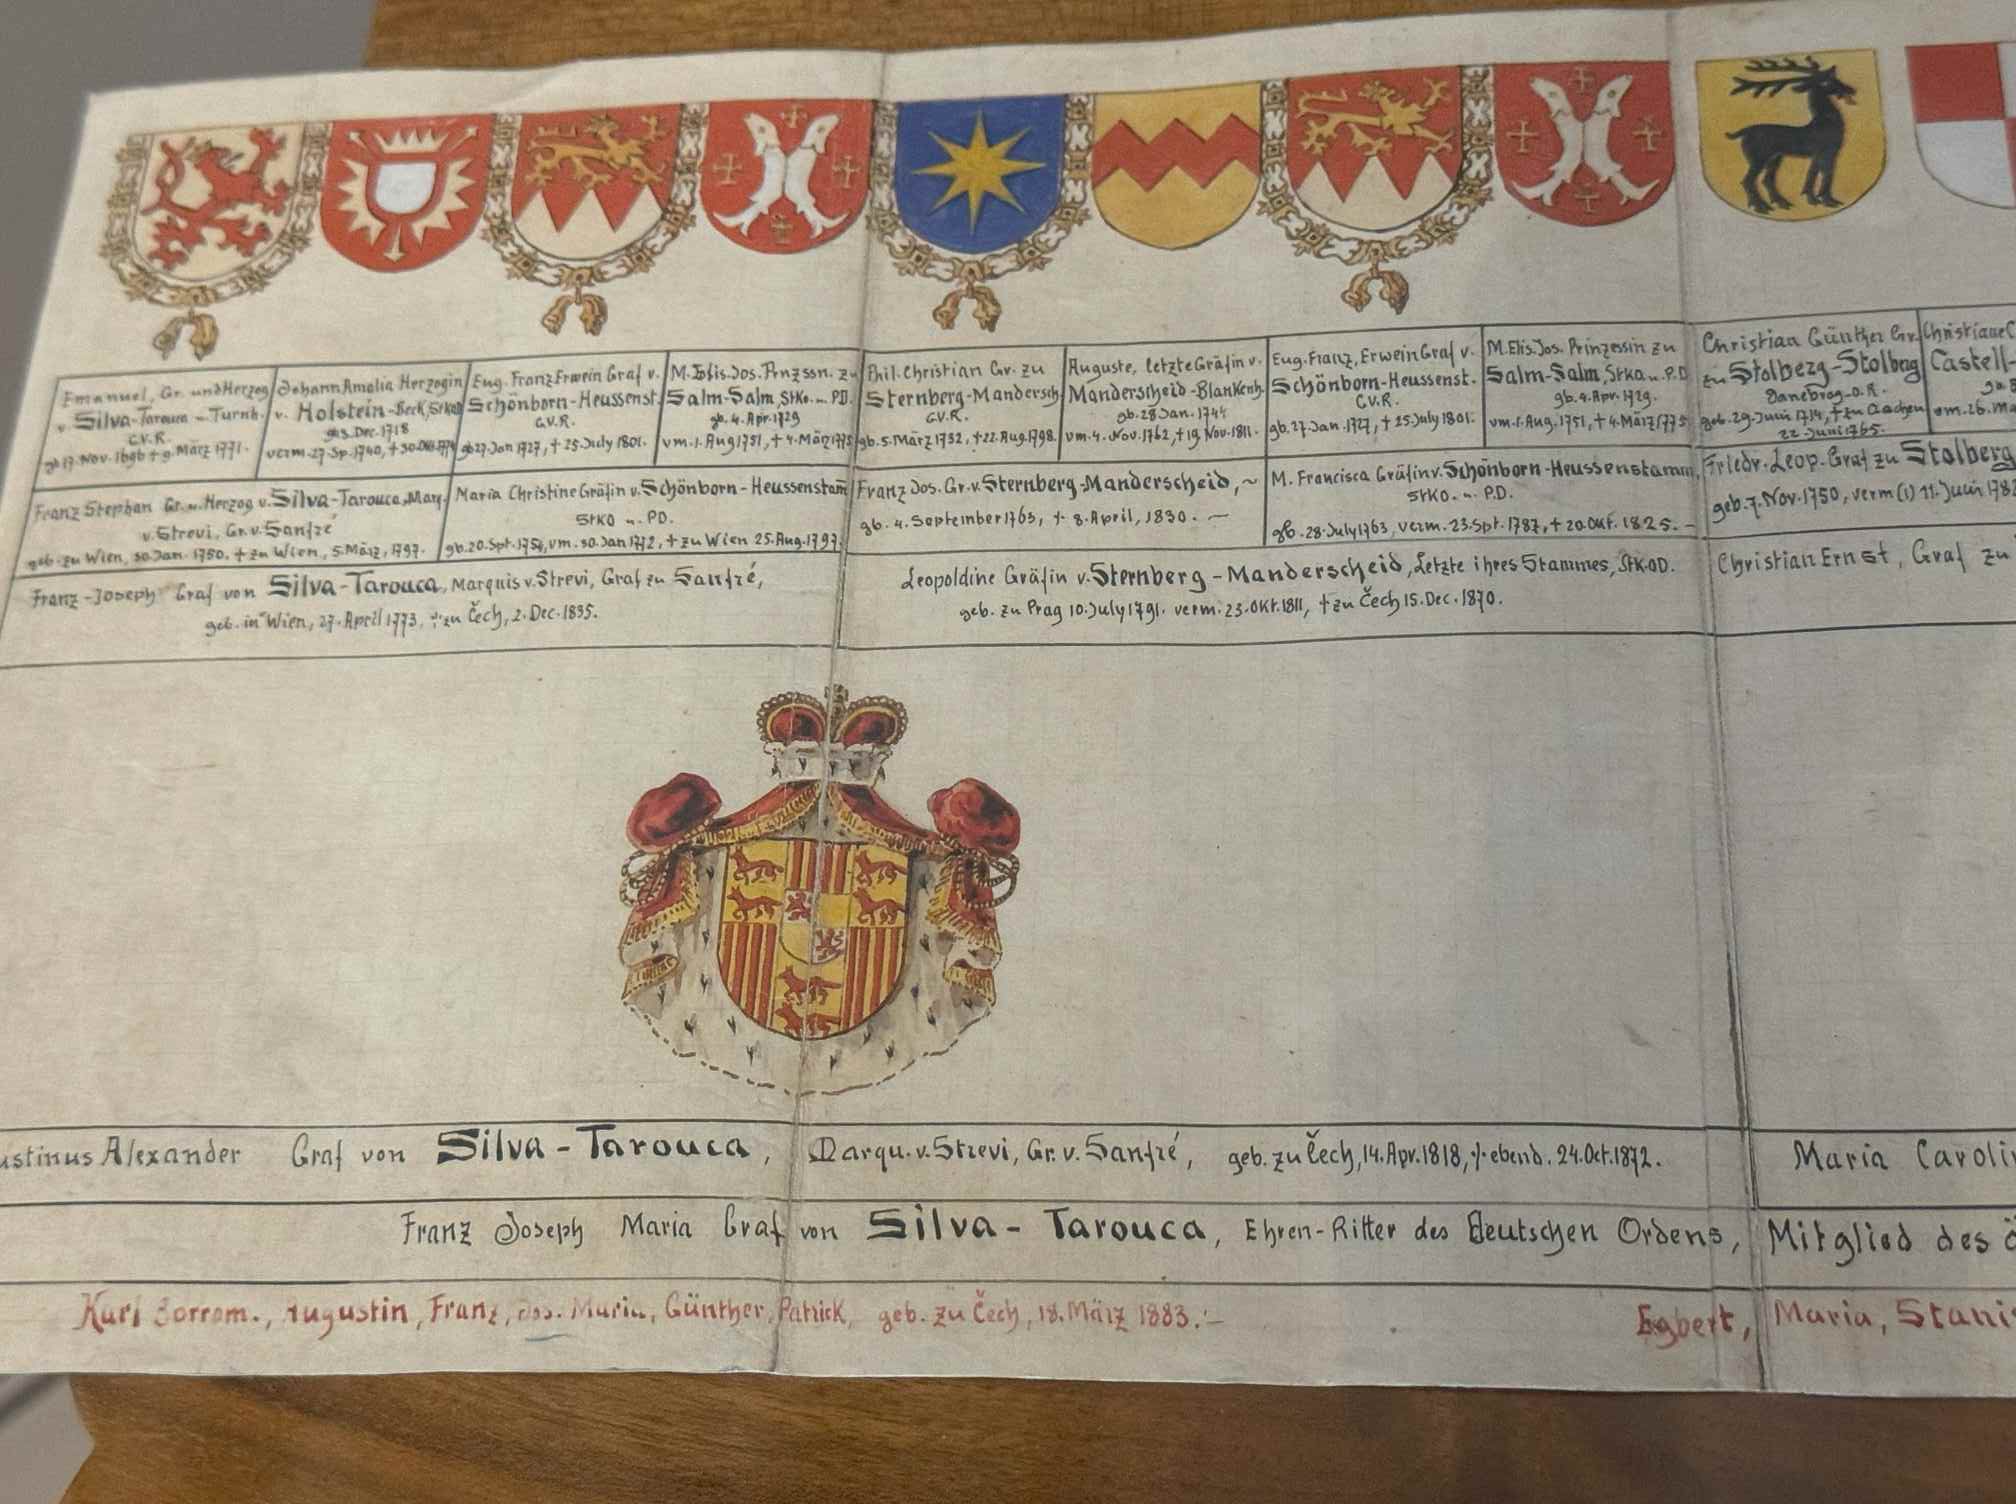 Emanuel, Gr. und Herzog
v. Silva-Tarouca - Turnh.
G.V.R.
gb 17. Nov. 1696 + 9. März 1771.
Johann Amalia Herzogin
v. Holstein-Beck, StKOD
verm. 27. Sp. 1740, +
Eug. Franz Erwein Graf v.
Schönborn-Heussenst.
G.V.R.
gb 27 Jan 1727, + 25. July 1801.
M. Elis. Jos. Prnzssn. zu
Salm-Salm, StKo. u. PD.
gb. 4. Apr. 1729
vm. 1. Aug 1751, + 4. März 1775
Phil. Christian Gr. zu
Sternberg-Mandersch
G.V.R.
gb. 5. März 1732, + 22. Aug. 1798.
Auguste, letzte Gräfin v.
Manderscheid-Blankenh.
gb. 28 Jan. 1744
vm. 4. Nov. 1762, + 19. Nov. 1811.
Eug. Franz, Erwein Graf v.
Schönborn-Heussenst.
G.V.R.
gb. 27. Jan. 1727, + 25 July 1801.
M. Elis. Jos. Prinzessin zu
Salm-Salm, StKo. u. P.D
gb. 4. Apr. 1729.
vm. 1. Aug. 1751, + 4. März 1775
Christian Günther Gr.
zu Stolberg-Stolbeg
Danebrog-O.R.
geb. 29. Juni 1714, + zu Aachen
22. Juni 1765.
Christiane C
Castell-
vm. 26. Ma
Franz Stephan Gr. u. Herzog v. Silva-Tarouca, Marq.
v. Strevi, Gr. v. Sanfré
geb. zu Wien, 30. Jan. 1750, + zu Wien, 5. März, 1797.
Maria Christine Gräfin v. Schönborn-Heussenstam̄
StKO u. PD.
gb. 20. Spt. 1754, vm. 30. Jan 1772, + zu Wien 25. Aug. 1797.
Franz Jos. Gr. v. Sternberg-Manderscheid, ~
gb. 4. September 1763, + 8. April, 1830. —
M. Francisca Gräfin v. Schönborn-Heussenstamm,
StKO. u. P.D.
gb. 28. July 1763, verm. 23. Spt. 1787, + 20. Okt. 1825. —
Friedr. Leop. Graf zu Stolberg
geb. 7. Nov. 1750, verm (1) 11. Juni 1782
Franz-Joseph Graf von Silva-Tarouca, Marquis v. Strevi, Graf zu Sanfré,
geb. in Wien, 27. April 1773, + zu Čech, 2. Dec. 1835.
Leopoldine Gräfin v. Sternberg-Manderscheid, Letzte ihres Stammes, StK.OD.
geb. zu Prag 10. July 1791. verm. 23. Okt. 1811, + zu Čech 15. Dec. 1870.
Christian Ernst, Graf zu
ustinus Alexander Graf von Silva-Tarouca, Marqu. v. Strevi, Gr. v. Sanfré, geb. zu Čech, 14. Apr. 1818, + ebend. 24. Oct. 1872.
Maria Carolin
Franz Joseph Maria Graf von Silva-Tarouca, Ehren-Ritter des Deutschen Ordens, Mitglied des ö
Karl Borrom., Augustin, Franz, Jos. Maria, Günther, Patrick, geb. zu Čech, 18. März 1883. —
Egbert, Maria, Stani